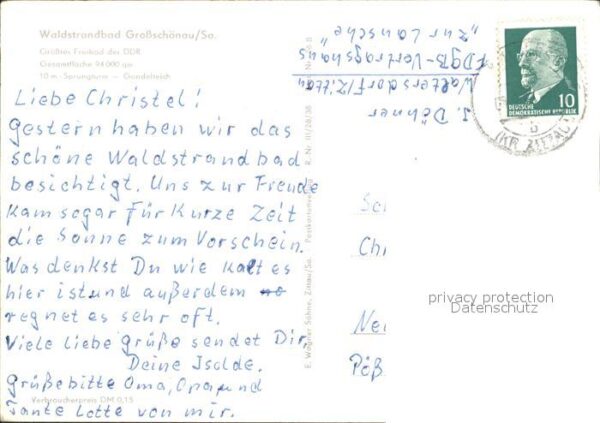 Waldstrandbad Großschönau/Sa.
Größtes Freibad der DDR
Gesamtfläche 94 000 qm
10 m-Sprungturm — Gondelteich
Liebe Christel!
Gestern haben wir das
schöne Waldstrandbad
besichtigt. Uns zur Freude
kam sogar für kurze Zeit
die Sonne zum Vorschein.
Was denkst Du wie kalt es
hier ist und außerdem
regnet es sehr oft.
Viele liebe grüße sendet Dir,
Deine Isolde.
Grüße bitte Oma, Opa und
Tante Lotte von mir.
Verbraucherpreis DM 0,15
E. Wagner Söhne, Zittau/Sa.
I. Döhner
Waltersdorf/Zittau
FDGB-Vertragshaus
"zur Lausche"
DEUTSCHE
DEMOKRATISCHE REPUBLIK
10
b
(KR ZITTAU)
Chr
Neu
Pöß
privacy protection
Datenschutz